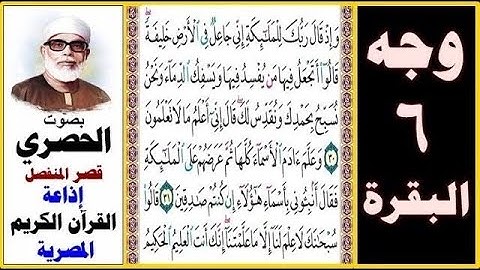 وجه
٦
البقرة
وَإِذْ قَالَ رَبُّكَ لِلْمَلَٰٓئِكَةِ إِنِّي جَاعِلٌ فِي الْأَرْضِ خَلِيفَةً
قَالُوٓا۟ أَتَجْعَلُ فِيهَا مَن يُفْسِدُ فِيهَا وَيَسْفِكُ الدِّمَآءَ وَنَحْنُ
نُسَبِّحُ بِحَمْدِكَ وَنُقَدِّسُ لَكَ قَالَ إِنِّيٓ أَعْلَمُ مَا لَا تَعْلَمُونَ
٣٠ وَعَلَّمَ ءَادَمَ الْأَسْمَآءَ كُلَّهَا ثُمَّ عَرَضَهُمْ عَلَى الْمَلَٰٓئِكَةِ
فَقَالَ أَنۢبِـُٔونِي بِأَسْمَآءِ هَٰٓؤُلَآءِ إِن كُنتُمْ صَٰدِقِينَ ٣١ قَالُوا۟
سُبْحَٰنَكَ لَا عِلْمَ لَنَآ إِلَّا مَا عَلَّمْتَنَآ إِنَّكَ أَنتَ الْعَلِيمُ الْحَكِيمُ
بصوت
الحصري
قصر المنفصل
إذاعة
القرآن الكريم
المصرية